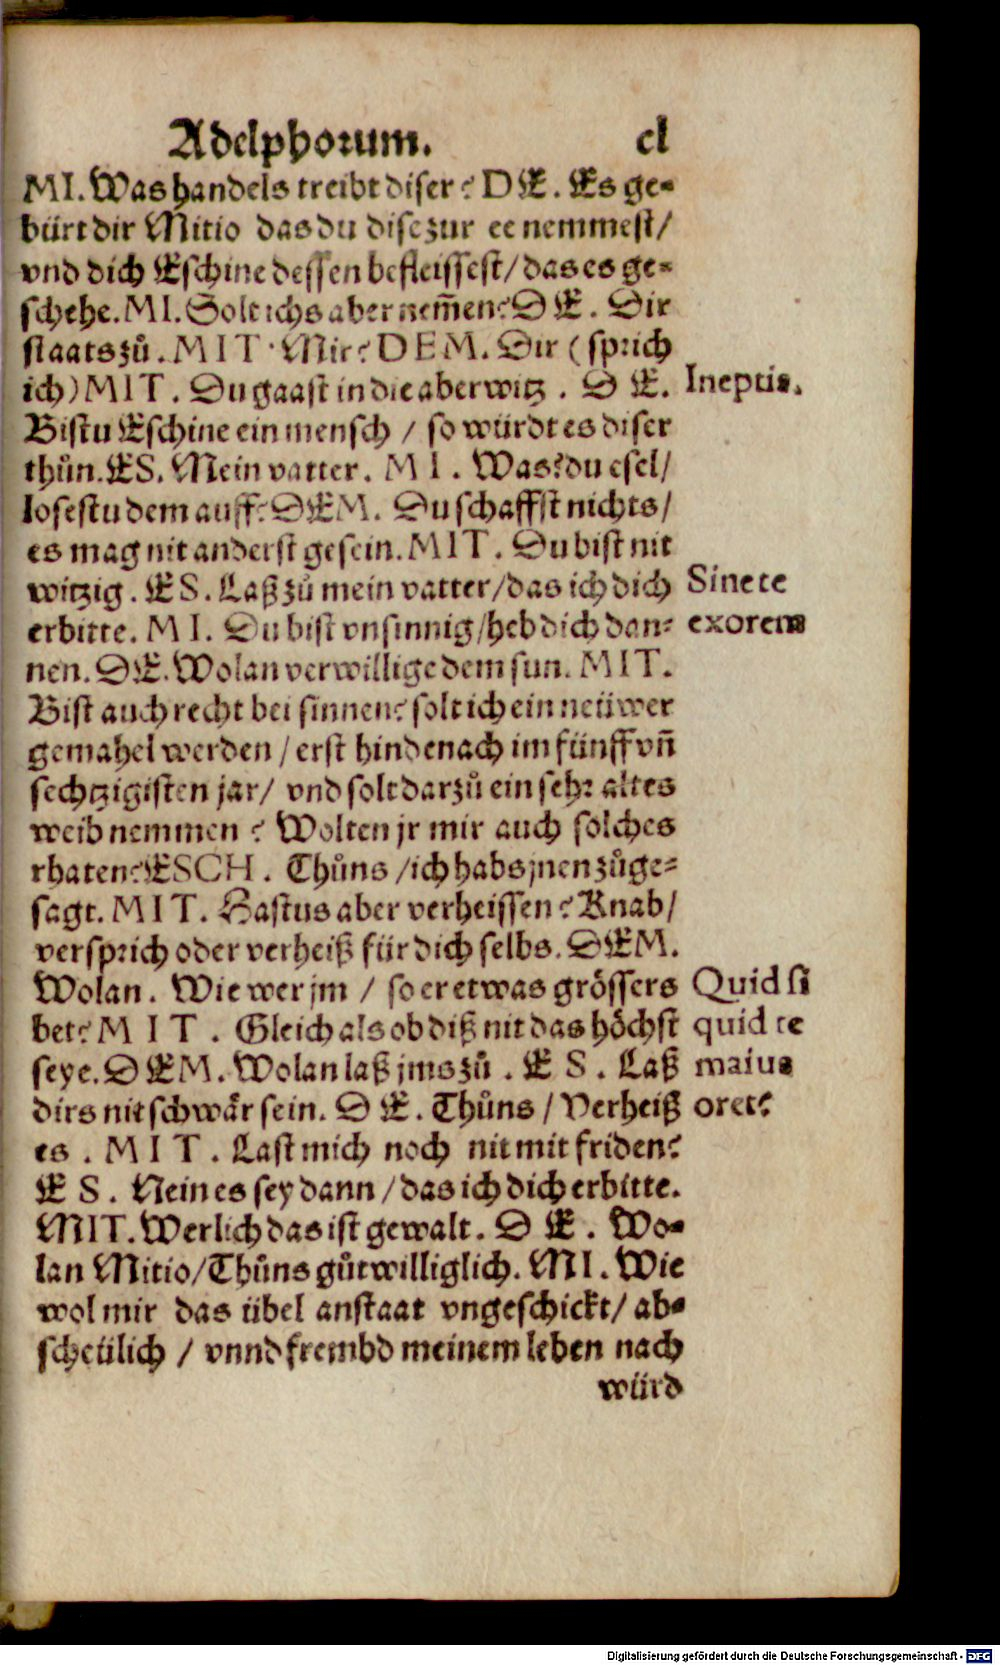 Adelphorum. cl
MI. Was handels treibt diser? DE. Es ge-
bürt dir Mitio das du dise zur ee nemmest/
vnd dich Eschine dessen befleissest/ das es ge-
schehe. MI. Solt ichs aber nem̃en? DE. Dir
staats zů. MIT. Mir? DEM. Dir (sprich
ich) MIT. Du gaast in die aberwitz. DE.
Ineptis.
Bistu Eschine ein mensch / so würdt es diser
thůn. ES. Mein vatter. MI. Was? du esel/
losestu dem auff? DEM. Du schaffst nichts/
es mag nit anderst gesein. MIT. Du bist nit
witzig. ES. Laß zů mein vatter/ das ich dich
Sine te
erbitte. MI. Du bist vnsinnig/ heb dich dan-
exorem
nen. DE. Wolan verwillige dem sun. MIT.
Bist auch recht bei sinnen? solt ich ein neüwer
gemahel werden / erst hindenach im fünff vñ
sechtzigisten jar/ vnd solt darzů ein sehr altes
weib nemmen? Wolten jr mir auch solches
rhaten? ESCH. Thůns / ich habs jnen zůge-
sagt. MIT. Hastus aber verheissen? Knab/
versprich oder verheiß für dich selbs. DEM.
Wolan. Wie wer jm / so er etwas grössers
Quid si
bet? MIT. Gleich als ob diß nit das höchst
quid te
seye. DEM. Wolan laß jms zů. ES. Laß
maius
dirs nit schwår sein. DE. Thůns / Verheiß
oret?
es. MIT. Last mich noch nit mit friden?
ES. Nein es sey dann / das ich dich erbitte.
MIT. Werlich das ist gewalt. DE. Wo-
lan Mitio/ Thůns gůtwilliglich. MI. Wie
wol mir das übel anstaat vngeschickt/ ab-
scheülich / vnnd frembd meinem leben nach
würd
Digitalisierung gefördert durch die Deutsche Forschungsgemeinschaft - DFG